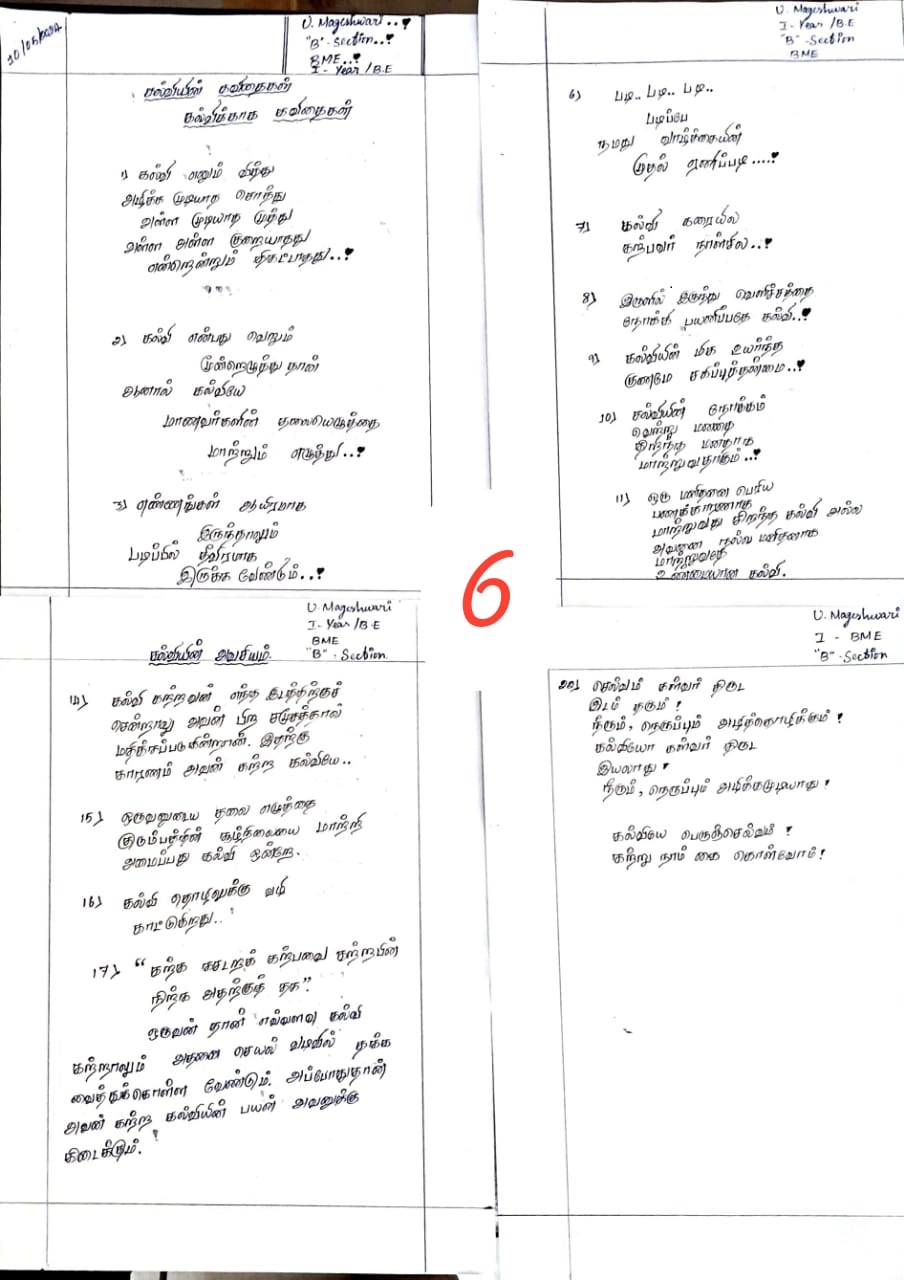 10/05/2024
U. Mageshwari..!
"B"-Section..!
BME..!
I - Year / B.E
கல்வியின் கவிதைகள்
கல்விக்காக கவிதைகள்
1) கல்வி எனும் விருந்து
அழிக்க முடியாத சொத்து
அள்ள முடியாத முத்து
அள்ள அள்ள குறையாதது
என்றென்றும் திகட்டாதது..!
2) கல்வி என்பது வெறும்
மூன்றெழுத்து தான்
ஆனால் கல்வியே
மாணவர்களின் தலையெழுத்தை
மாற்றும் எழுத்து..!
3) எண்ணங்கள் ஆயிரமாக
இருந்தாலும்
படிப்பில் தீவிரமாக
இருக்க வேண்டும்..!
U. Mageshwari
I - Year / B.E
"B" - Section
BME
6) படி.. படி.. படி..
படிப்பே
நமது வாழ்க்கையின்
முதல் ஏணிப்படி....!
7) கல்வி கரையில
கற்பவர் நாள்சில..!
8) இருளில் இருந்து வெளிச்சத்தை
நோக்கி பயணிப்பதே கல்வி..!
9) கல்வியின் மிக உயர்ந்த
குணமே சகிப்புத்தன்மை..!
10) கல்வியின் நோக்கம்
வெற்று மனதை
திறந்த மனதாக
மாற்றுவதாகும்..!
11) ஒரு மனிதனை பெரிய
பணக்காரனாக
மாற்றுவது சிறந்த கல்வி அல்ல
அவனை நல்ல மனிதனாக
மாற்றுவதே
உண்மையான கல்வி.
6
U. Mageshwari
I - Year / B.E
BME
"B" - Section
கல்வியின் அவசியம்
14) கல்வி கற்றவன் எந்த இடத்திற்குச்
சென்றாலு அவன் பிற சமூகத்தால்
மதிக்கப்படுகின்றான். இதற்கு
காரணம் அவன் கற்ற கல்வியே..
15) ஒருவனுடைய தலை எழுத்தை
குடும்பத்தின் சூழ்நிலையை மாற்றி
அமைப்பது கல்வி ஒன்றே.
16) கல்வி தொழிலுக்கு வழி
காட்டுகிறது..
17) "கற்க கசடறக் கற்பவை கற்றபின்
நிற்க அதற்குத் தக"
ஒருவன் தான் எவ்வளவு கல்வி
கற்றாலும் அதனை செயல் வடிவில் தக்க
வைத்துக்கொள்ள வேண்டும். அப்போதுதான்
அவன் கற்ற கல்வியின் பயன் அவனுக்கு
கிடைக்கும்.
U. Mageshwari
I - BME
"B" - Section
20) செல்வம் கள்வர் திருட
இடம் தரும்!
நீரும், நெருப்பும் அழித்தொழிக்கும்!
கல்வியோ கள்வர் திருட
இயலாது!
நீரும், நெருப்பும் அழிக்கமுடியாது!
கல்வியே பெருஞ்செல்வம்!
கற்று நாம் கை கொள்வோம்!